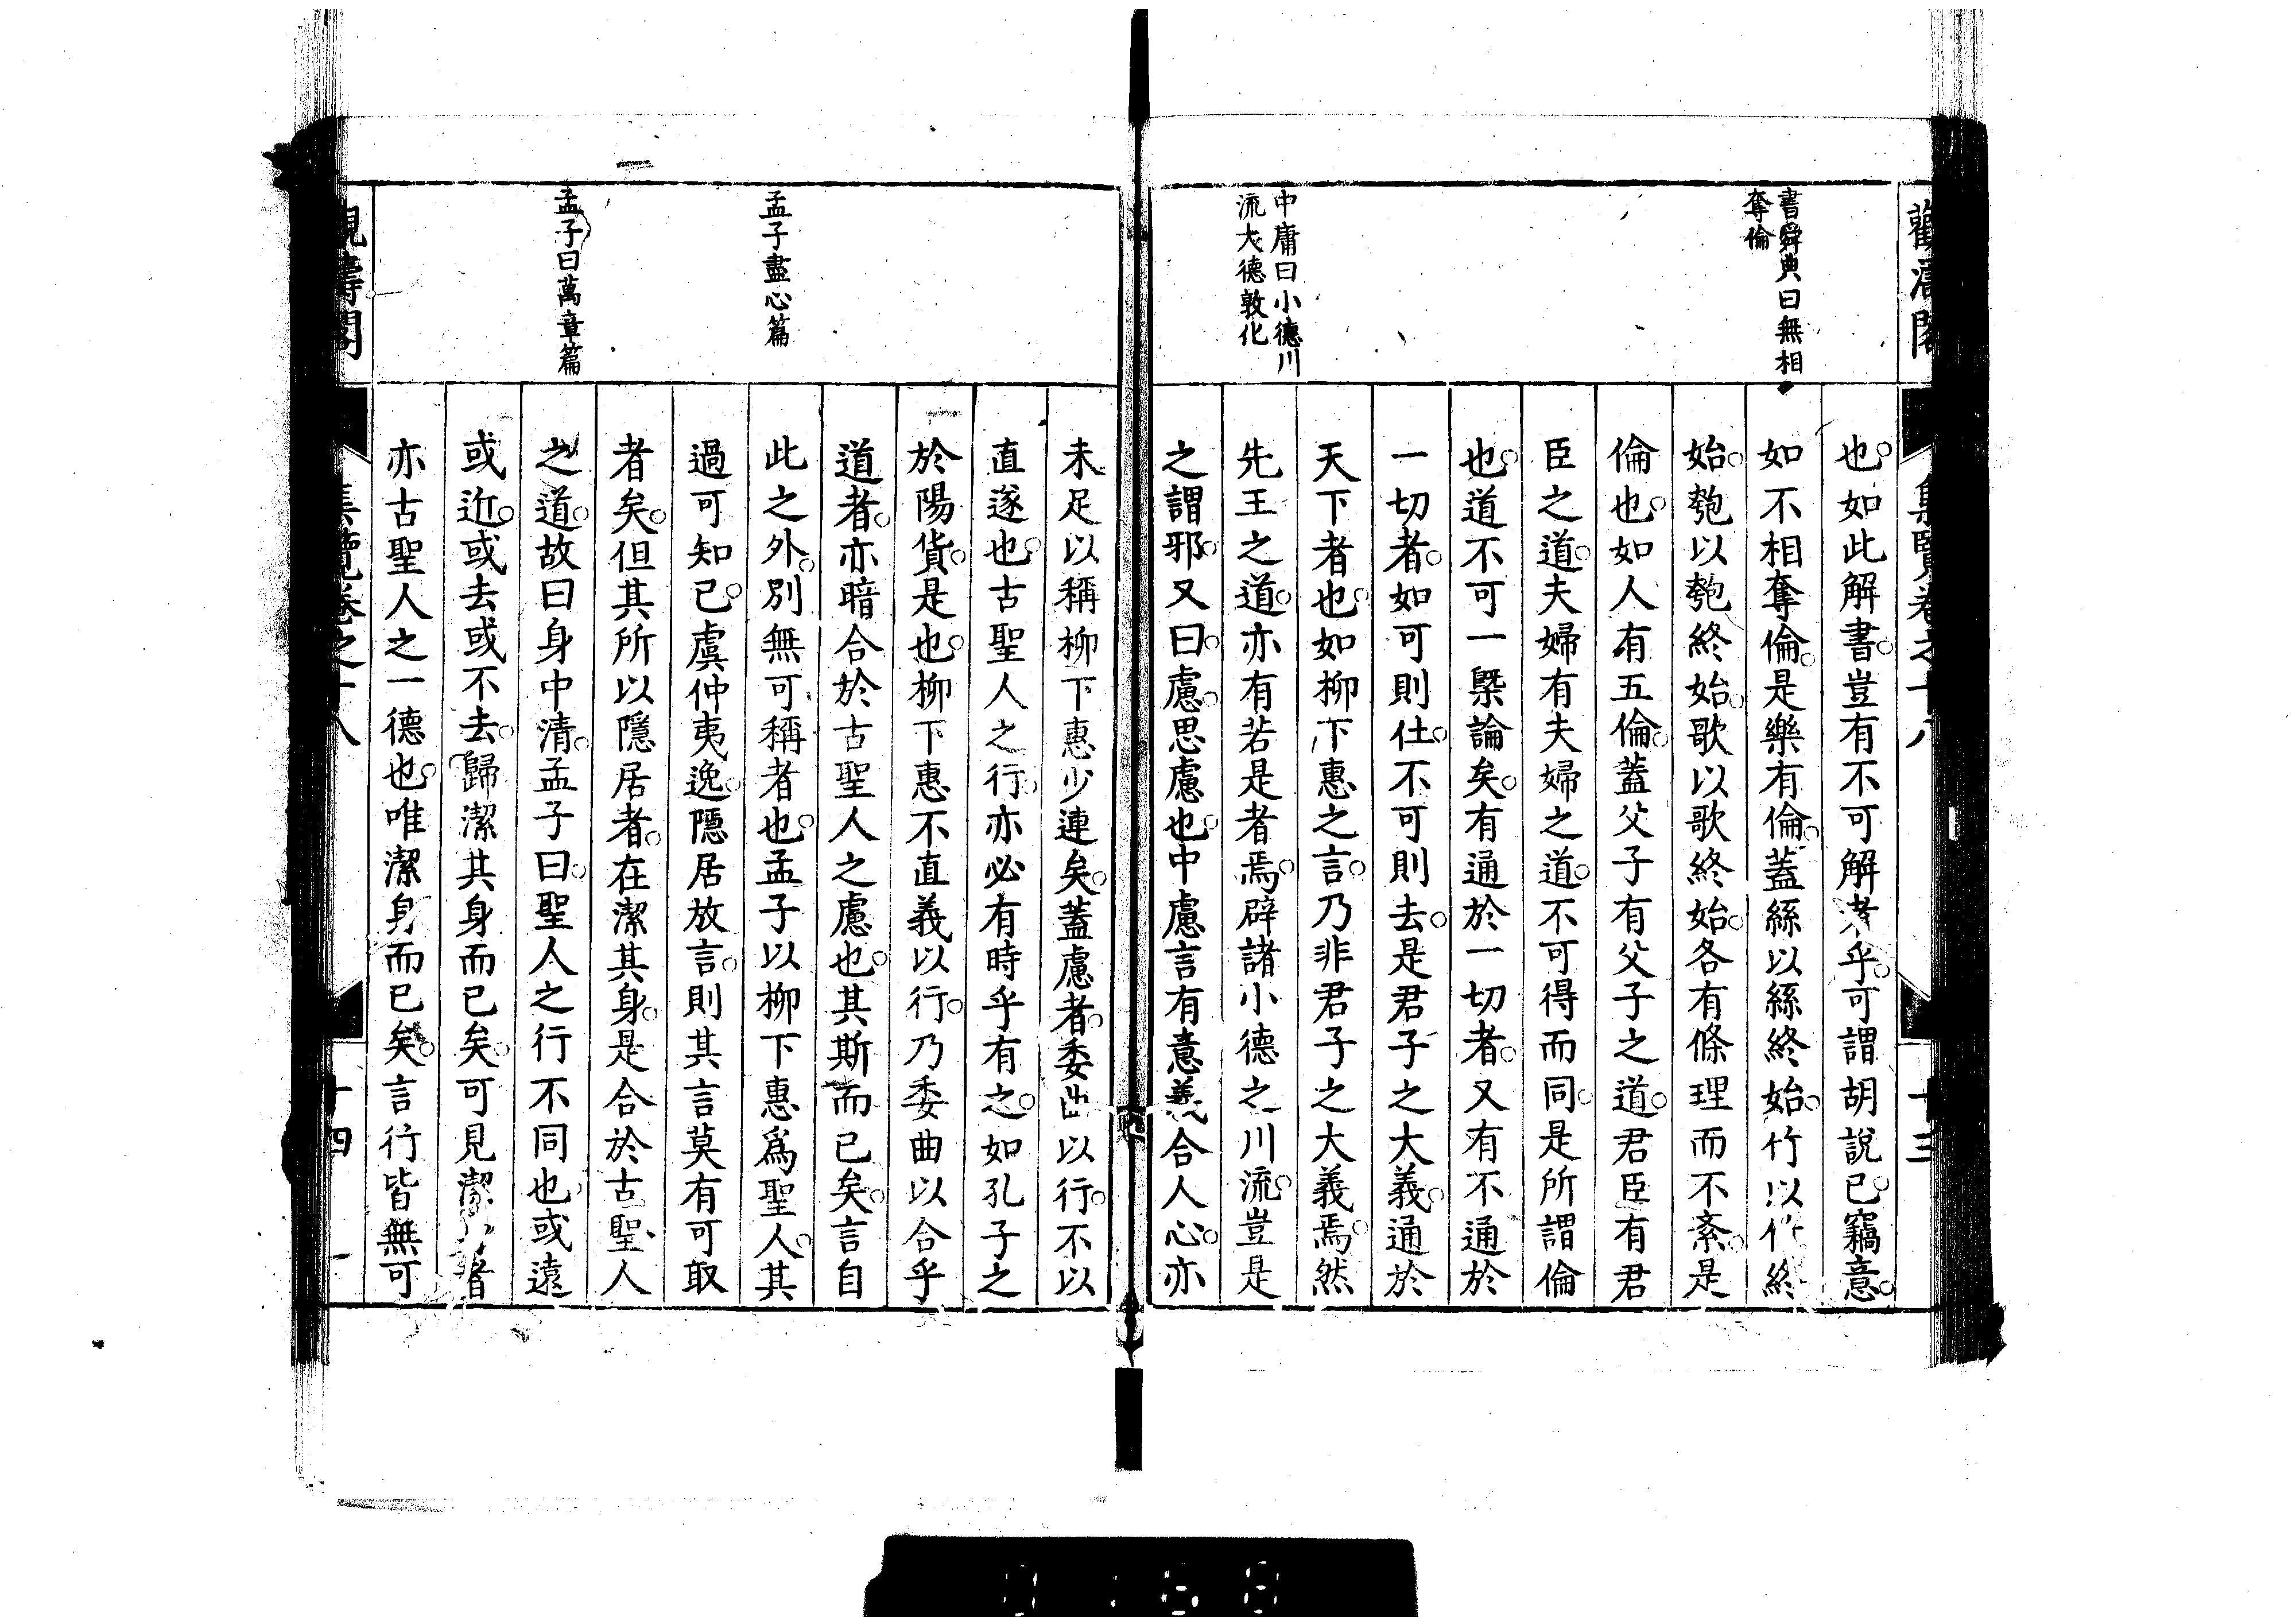 書舜典曰無相
奪倫
中庸曰小德川
流大德敦化
也如此解書豈有不可解者乎可謂胡說已竊意
如不相奪倫是樂有倫蓋絲以絲終始竹以竹終
始匏以匏終始歌以歌終始各有條理而不紊是
倫也如人有五倫蓋父子有父子之道君臣有君
臣之道夫婦有夫婦之道不可得而同是所謂倫
也道不可一槩論矣有通於一切者又有不通於
一切者如可則仕不可則去是君子之大義通於
天下者也如柳下惠之言乃非君子之大義焉然
先王之道亦有若是者焉辟諸小德之川流豈是
之謂邪又曰慮思慮也中慮言有意義合人心亦
孟子盡心篇
孟子曰萬章篇
未足以稱柳下惠少連矣蓋慮者委曲以行不以
直遂也古聖人之行亦必有時乎有之如孔子之
於陽貨是也柳下惠不直義以行乃委曲以合乎
道者亦暗合於古聖人之慮也其斯而已矣言自
此之外別無可稱者也孟子以柳下惠爲聖人其
過可知已虞仲夷逸隱居放言則其言莫有可取
者矣但其所以隱居者在潔其身是合於古聖人
之道故曰身中清孟子曰聖人之行不同也或遠
或近或去或不去歸潔其身而已矣可見潔身者
亦古聖人之一德也唯潔身而已矣言行皆無可